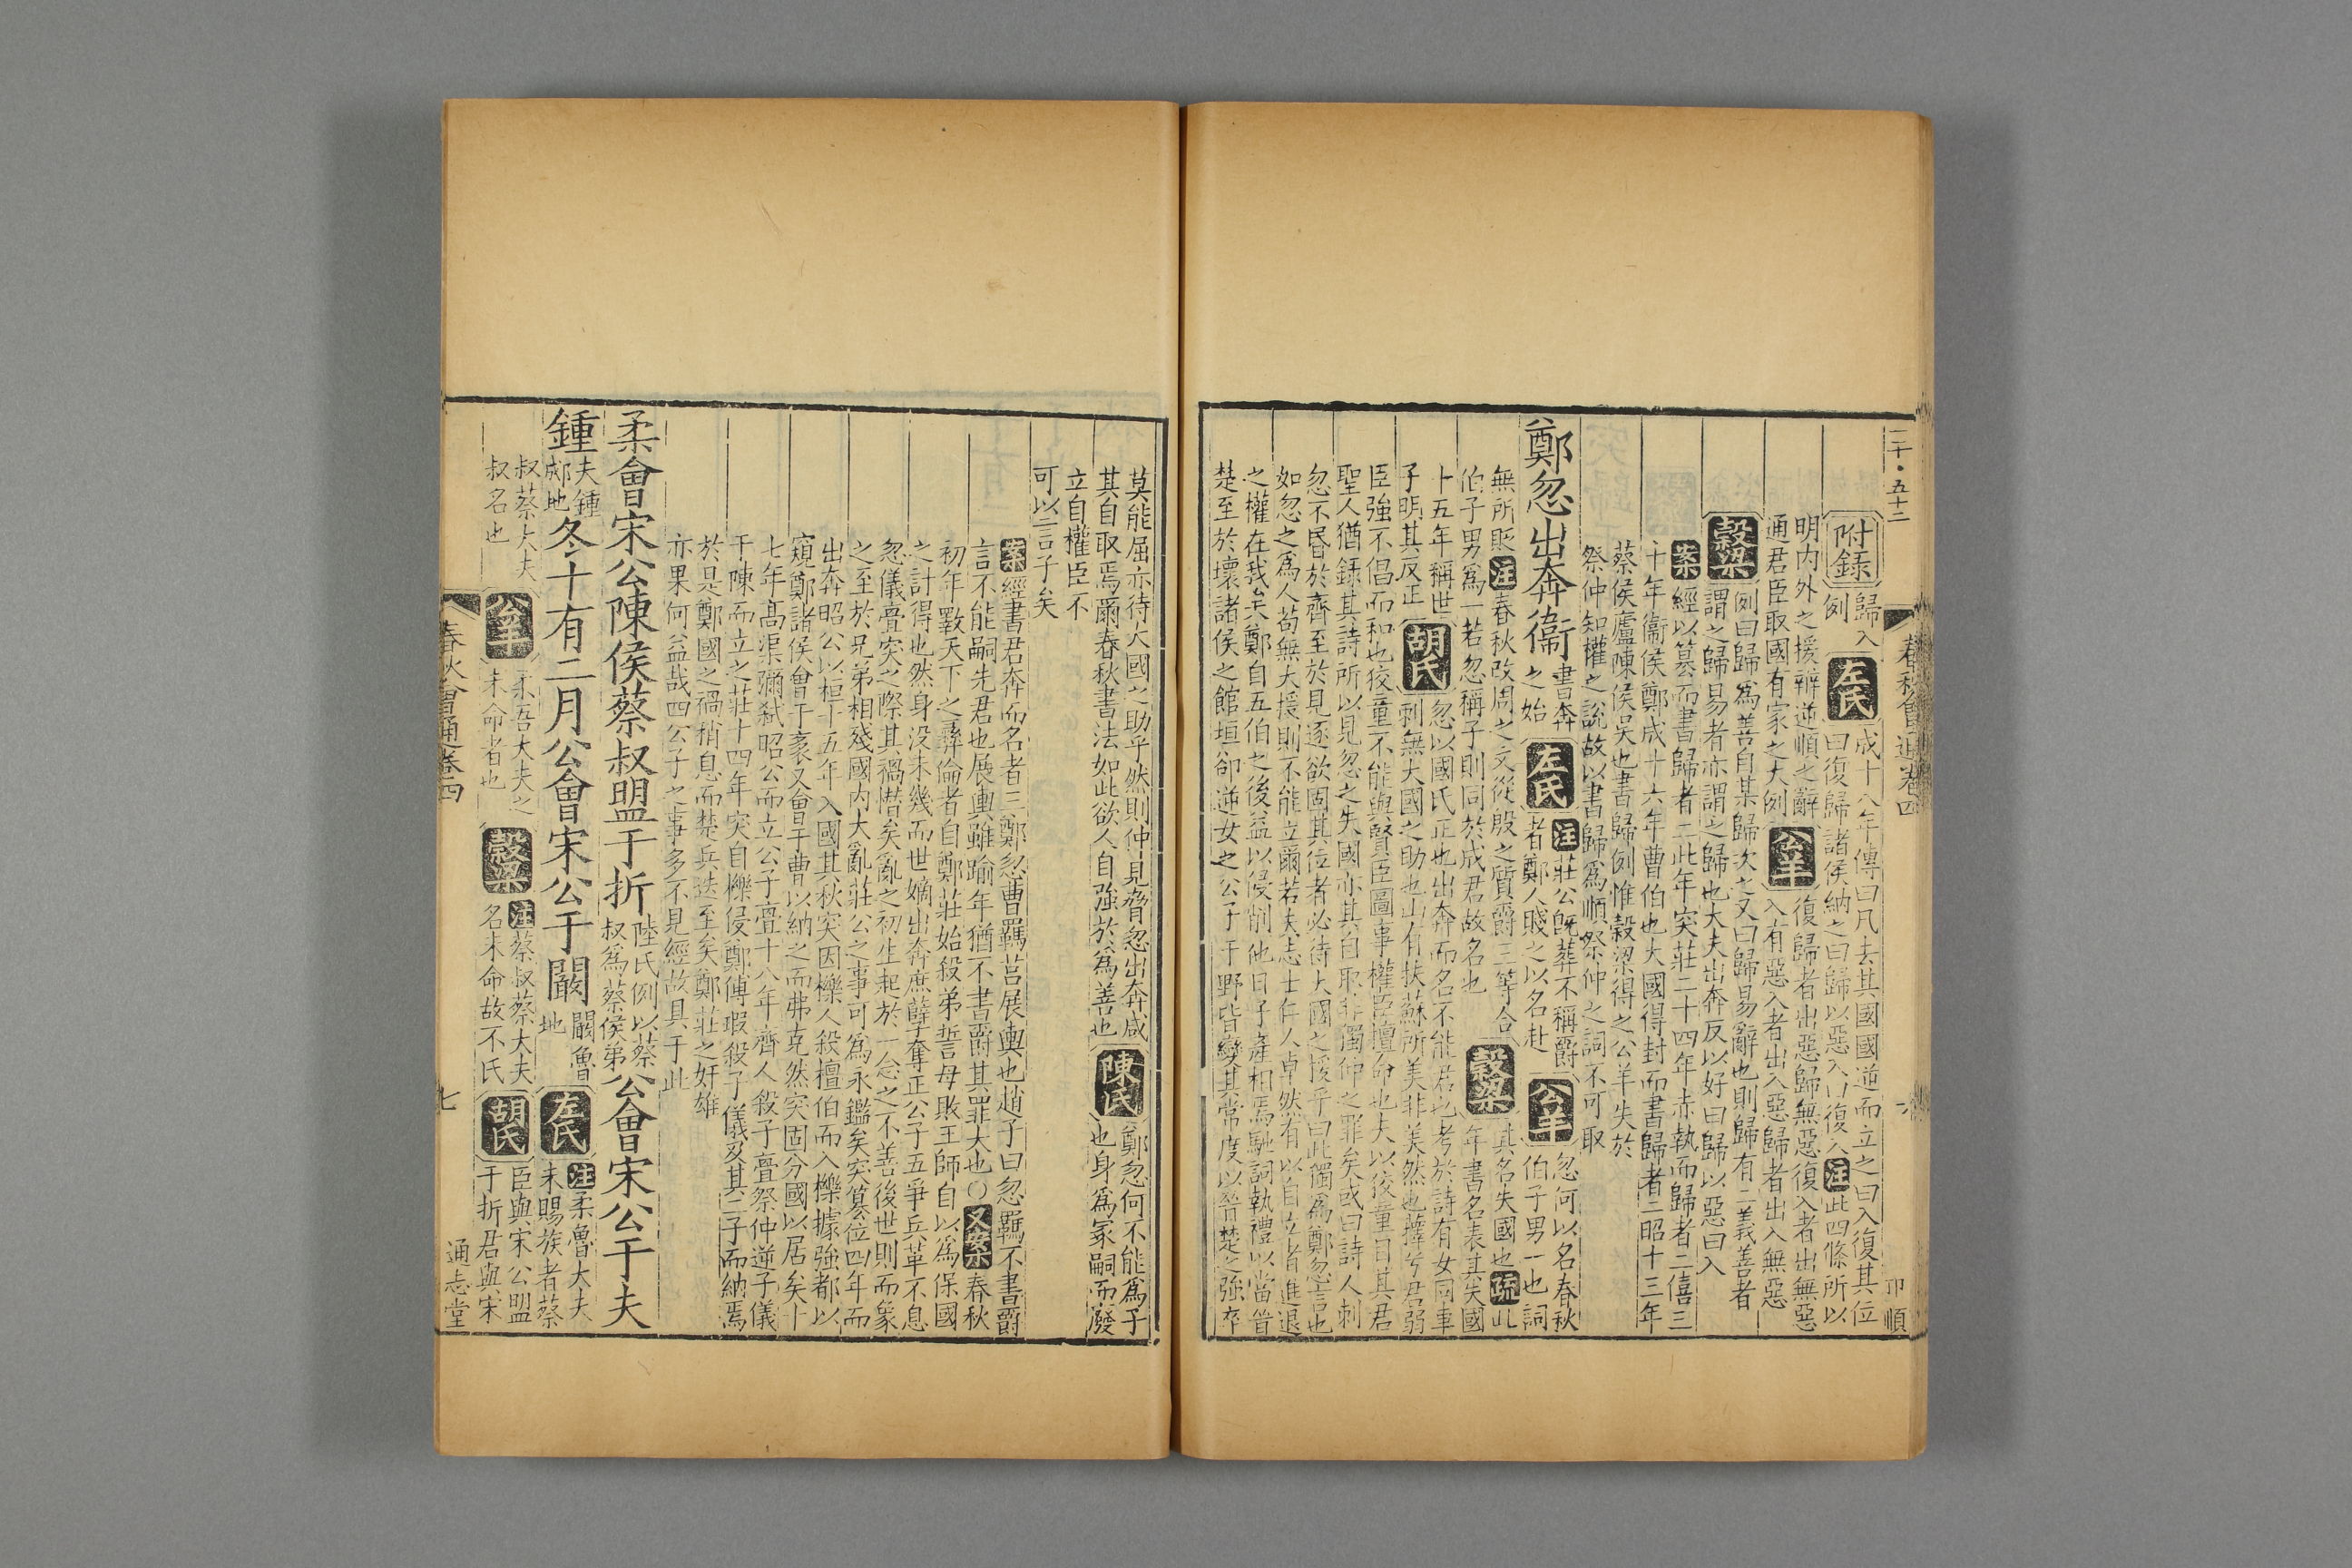 二千·五十二
春秋會通卷四
六
卬順
附錄
歸入
例
左氏
成十八年傳曰凡去其國國逆而立之曰入復其位
曰復歸諸侯納之曰歸以惡入曰復入注此四條所以
明內外之援辨逆順之辭
通君臣取國有家之大例
公羊
復歸者出惡歸無惡復入者出無惡
入有惡入者出入惡歸者出入無惡
穀梁
例曰歸爲善自某歸次之又曰歸易辭也則歸有二義善者
謂之歸易者亦謂之歸也大夫出奔反以好曰歸以惡曰入
案經以篡而書歸者二此年突莊二十四年赤執而歸者二僖三
十年衞侯鄭成十六年曹伯也大國得封而書歸者二昭十三年
蔡侯廬陳侯吳也書歸例惟穀梁得之公羊失於
祭仲知權之說故以書歸爲順祭仲之詞不可取
鄭忽出奔衞
書奔
之始
左氏
注莊公旣葬不稱爵
者鄭人賤之以名赴
公羊
忽何以名春秋
伯子男一也詞
無所貶注春秋改周之文從殷之質爵三等合
伯子男爲一若忽稱子則同於成君故名也
穀梁
其名失國也疏此
年書名表其失國
十五年稱世
子明其反正
胡氏
忽以國氏正也出奔而名不能君也考於詩有女同車
刺無大國之助也山有扶蘇所美非美然也蘀兮君弱
臣強不倡而和也狡童不能與賢臣圖事權臣擅命也夫以狡童目其君
聖人猶錄其詩所以見忽之失國亦其自取非獨仲之罪矣或曰詩人刺
忽不昏於齊至於見逐欲固其位者必待大國之援乎曰此獨爲鄭忽言也
如忽之爲人苟無大援則不能立爾若夫志士仁人卓然有以自立者進退
之權在我矣鄭自五伯之後益以侵削他日子產相焉馳詞執禮以當晉
楚至於壞諸侯之館垣卻逆女之公子于野皆變其常度以晉楚之強卒
莫能屈亦待大國之助乎然則仲見脅忽出奔咸
其自取焉爾春秋書法如此欲人自強於爲善也
陳氏
鄭忽何不能爲子
也身爲冢嗣而廢
立自權臣不
可以言子矣
案經書君奔而名者三鄭忽曹羈莒展輿也趙子曰忽羈不書爵
言不能嗣先君也展輿雖踰年猶不書爵其罪大也○又案春秋
初年斁天下之彝倫者自鄭莊始殺弟誓母敗王師自以爲保國
之計得也然身沒未幾而世嫡出奔庶孽奪正公子五爭兵革不息
忽儀亹突之際其禍憯矣亂之初生起於一念之不善後世則而象
之至於兄弟相殘國內大亂莊公之事可爲永鑑矣突篡位四年而
出奔昭公以桓十五年入國其秋突因櫟人殺檀伯而入櫟據強都以
窺鄭諸侯會于袲又會于曹以納之而弗克然突固分國以居矣十
七年高渠彌弒昭公而立公子亹十八年齊人殺子亹祭仲逆子儀
于陳而立之莊十四年突自櫟侵鄭傅瑕殺子儀及其二子而納焉
於是鄭國之禍稍息而楚兵迭至矣鄭莊之奸雄
亦果何益哉四公子之事多不見經故具于此
柔會宋公陳侯蔡叔盟于折
陸氏例以蔡
叔爲蔡侯弟
公會宋公于夫
鍾
夫鍾
郕地
冬十有二月公會宋公于闞
闞魯
地
左氏
注柔魯大夫
未賜族者蔡
叔蔡大夫
叔名也
公羊
柔吾大夫之
未命者也
穀梁
注蔡叔蔡大夫
名未命故不氏
胡氏
臣與宋公盟
于折君與宋
春秋會通卷四
七
通志堂